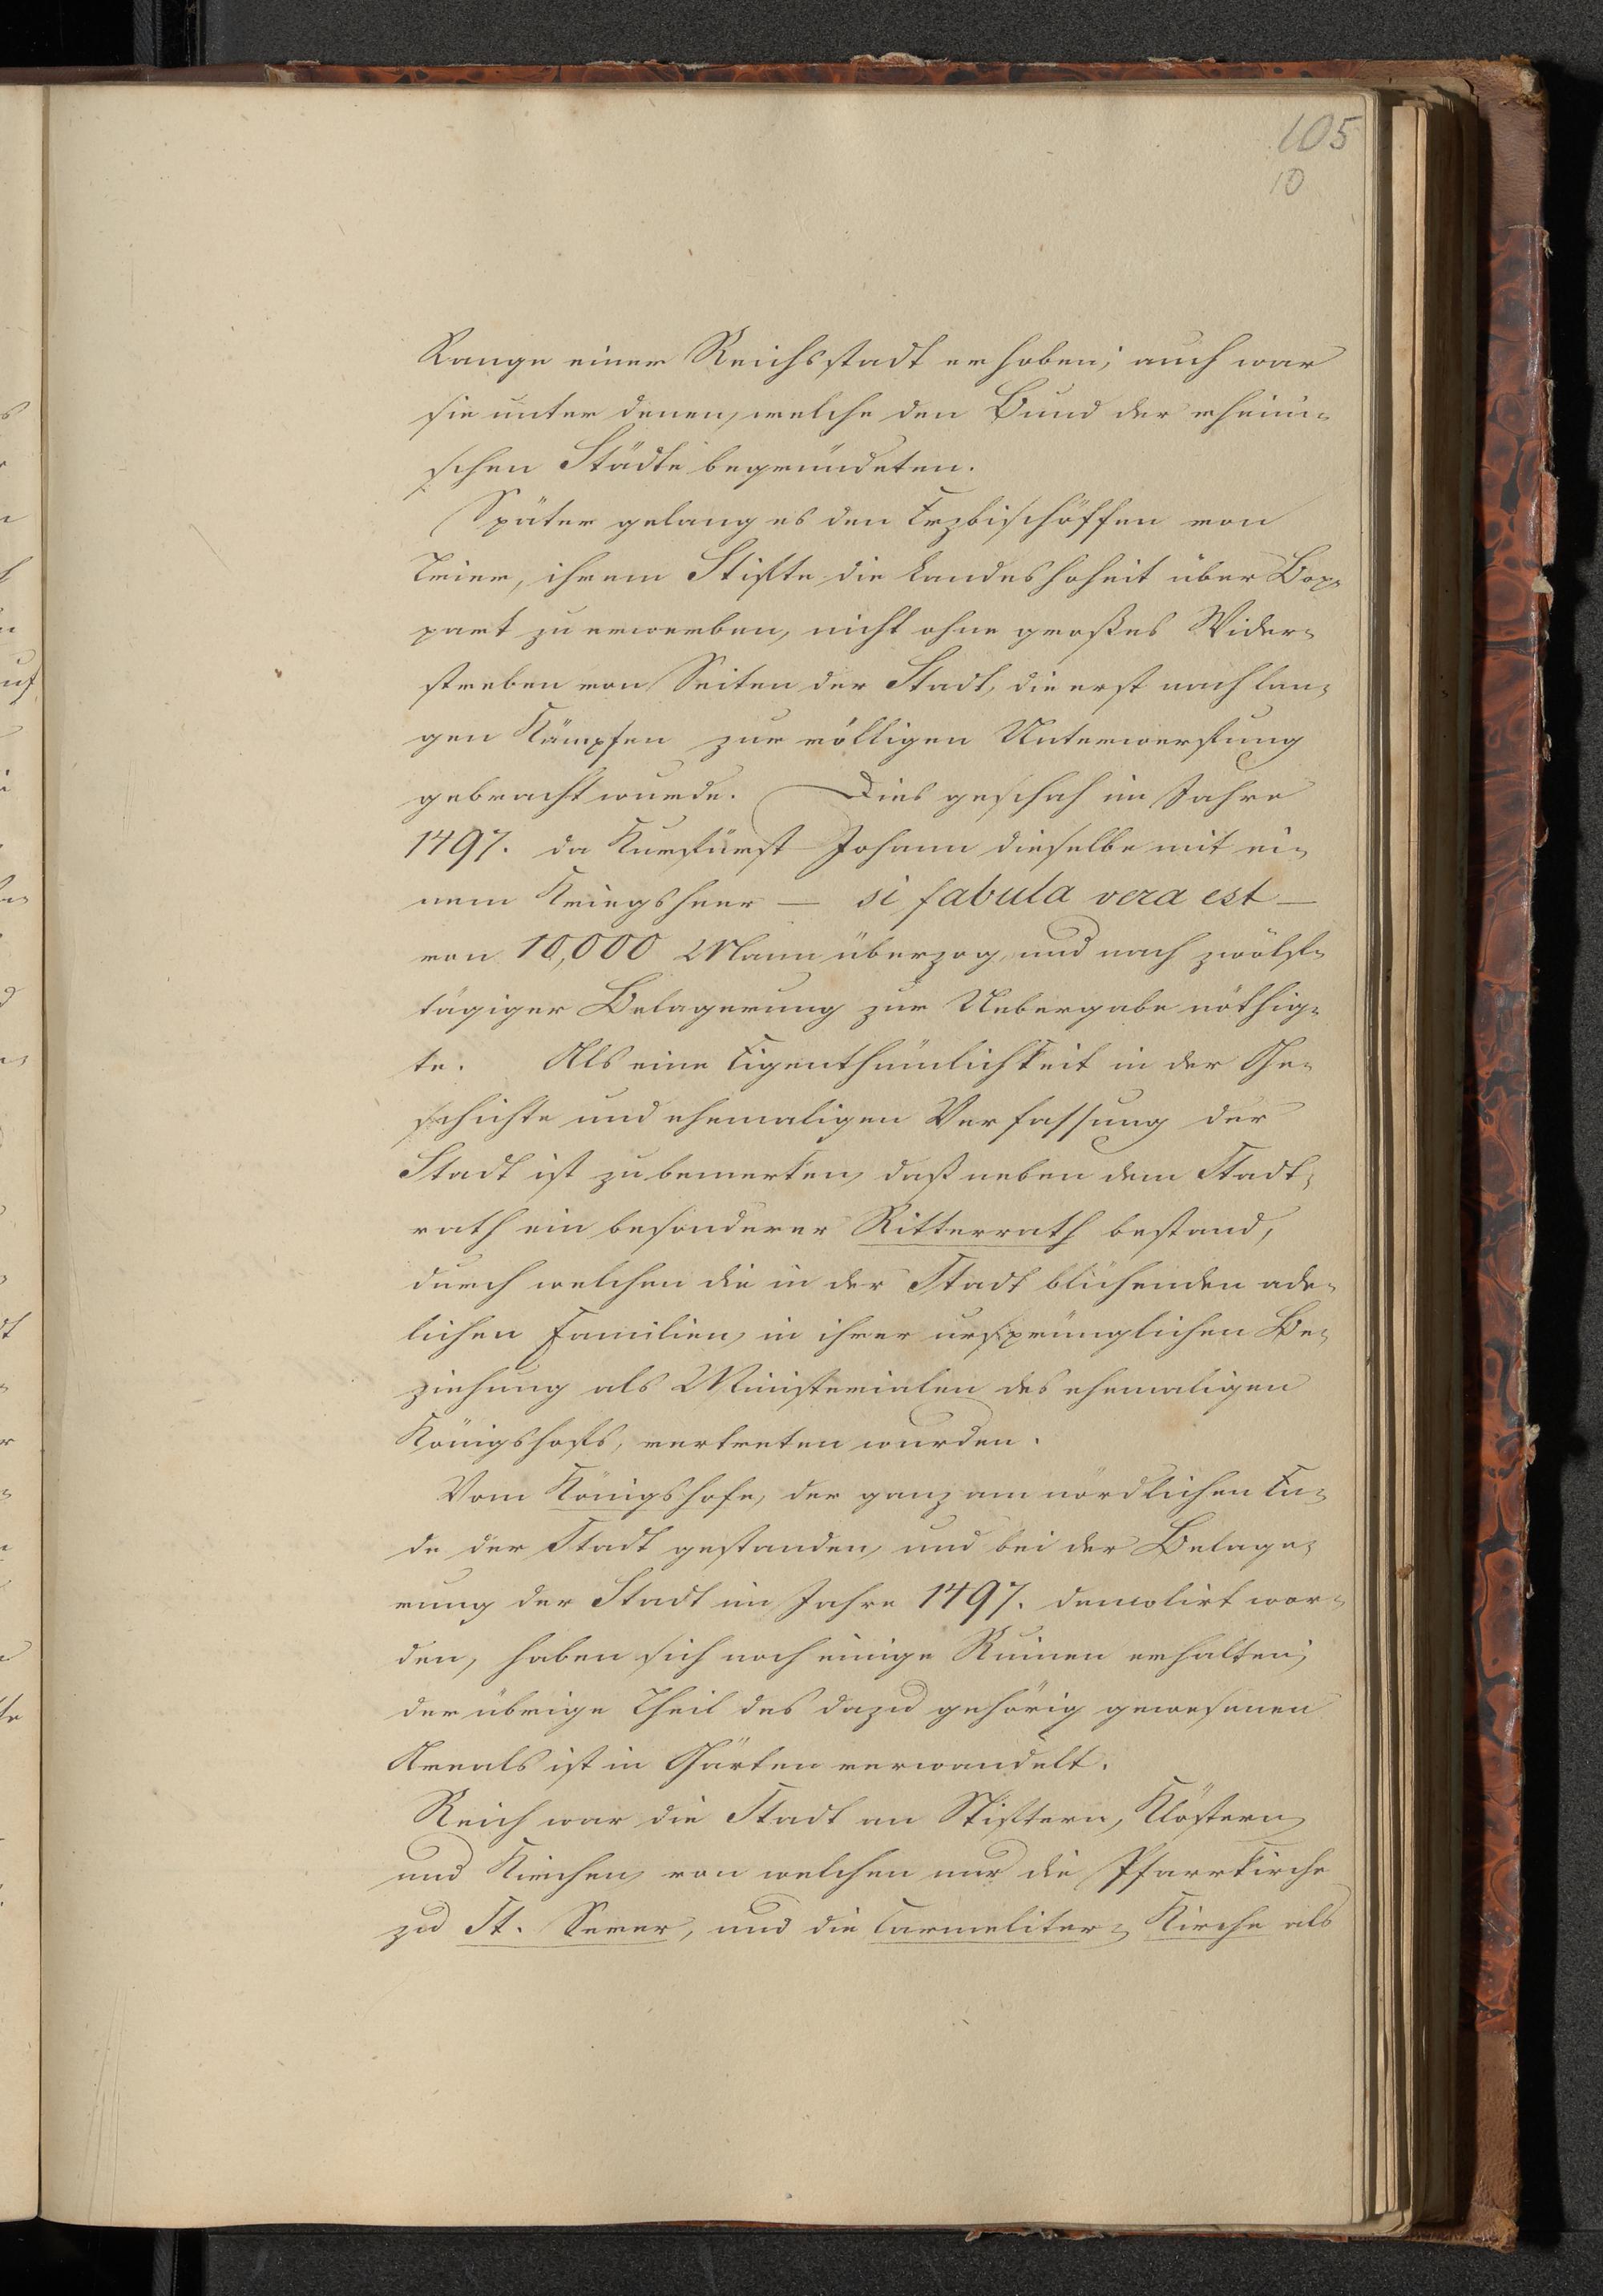 105
10
Range einer Reichsstadt erhoben; auch war
sie unter denen, welche den Bund der rheini-
schen Städte begründeten.
Später gelang es den Erzbischöffen von
Trier, ihrem Stifte die Landeshoheit über Bop-
part zu erwerben, nicht ohne großes Wider-
streben von Seiten der Stadt, die erst nach lan-
gen Kämpfen zur völligen Unterwerfung
gebracht wurde. Dies geschah im Jahre
1497. da Kurfürst Johann dieselbe mit ei-
nem Kriegsheer — si fabula vera est —
von 10,000 Mann überzog, und nach zwölf-
tägiger Belagerung zur Uebergabe nöthig-
te. Als eine Eigenthümlichkeit in der Ge-
schichte und ehemaligen Verfassung der
Stadt ist zu bemerken, daß neben dem Stadt-
rath ein besonderer Ritterrath bestand,
durch welchen die in der Stadt blühenden ade-
lichen Familien, in ihrer ursprünglichen Be-
ziehung als Ministerialen des ehemaligen
Königshofs, vertreten wurden.
Vom Königshofe, der ganz am nördlichen En-
de der Stadt gestanden, und bei der Belage-
rung der Stadt im Jahre 1497. demolirt wor-
den, haben sich noch einige Ruinen erhalten;
der übrige Theil des dazu gehörig gewesenen
Areals ist in Gärten verwandelt.
Reich war die Stadt an Stiftern, Klöstern
und Kirchen, von welchen nur die Pfarrkirche
zu St. Sever, und die Carmeliter-Kirche als